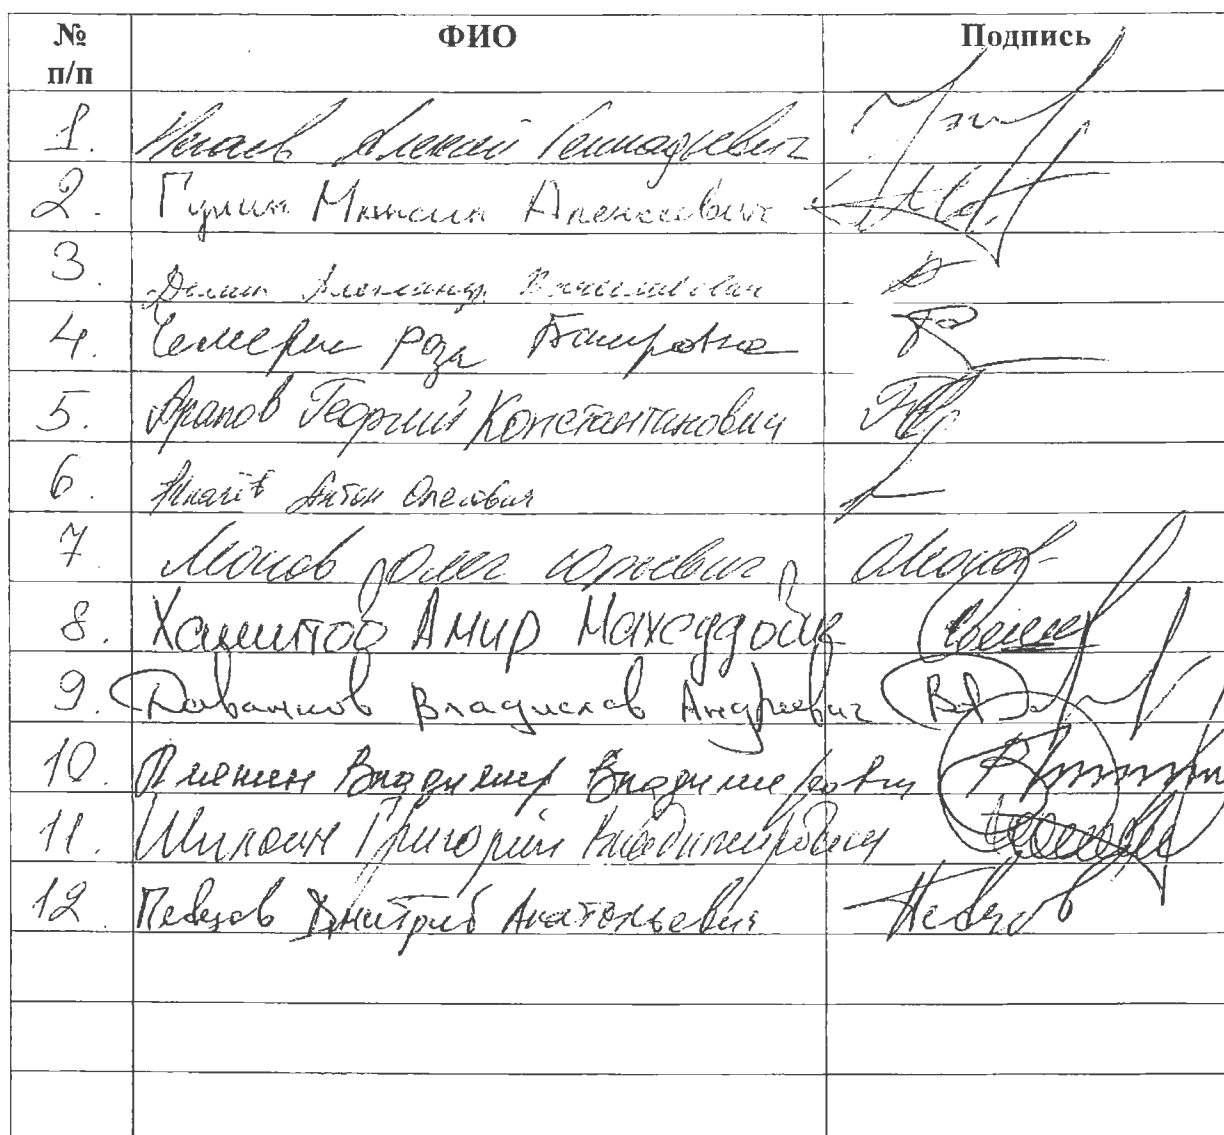 № п/п ФИО Подпись
1. Нечаев Алексей Геннадьевич
2. Гулин Максим Алексеевич
3. Демин Александр Вячеславович
4. Чемерис Роза Баировна
5. Арапов Георгий Константинович
6. Ткачёв Антон Олегович
7 Леонов Олег Юрьевич Леонов
8. Хамитов Амир Махсудович
9. Даванков Владислав Андреевич
10. Плякин Владимир Владимирович
11. Шилкин Григорий Владимирович
12. Певцов Дмитрий Анатольевич Певцов